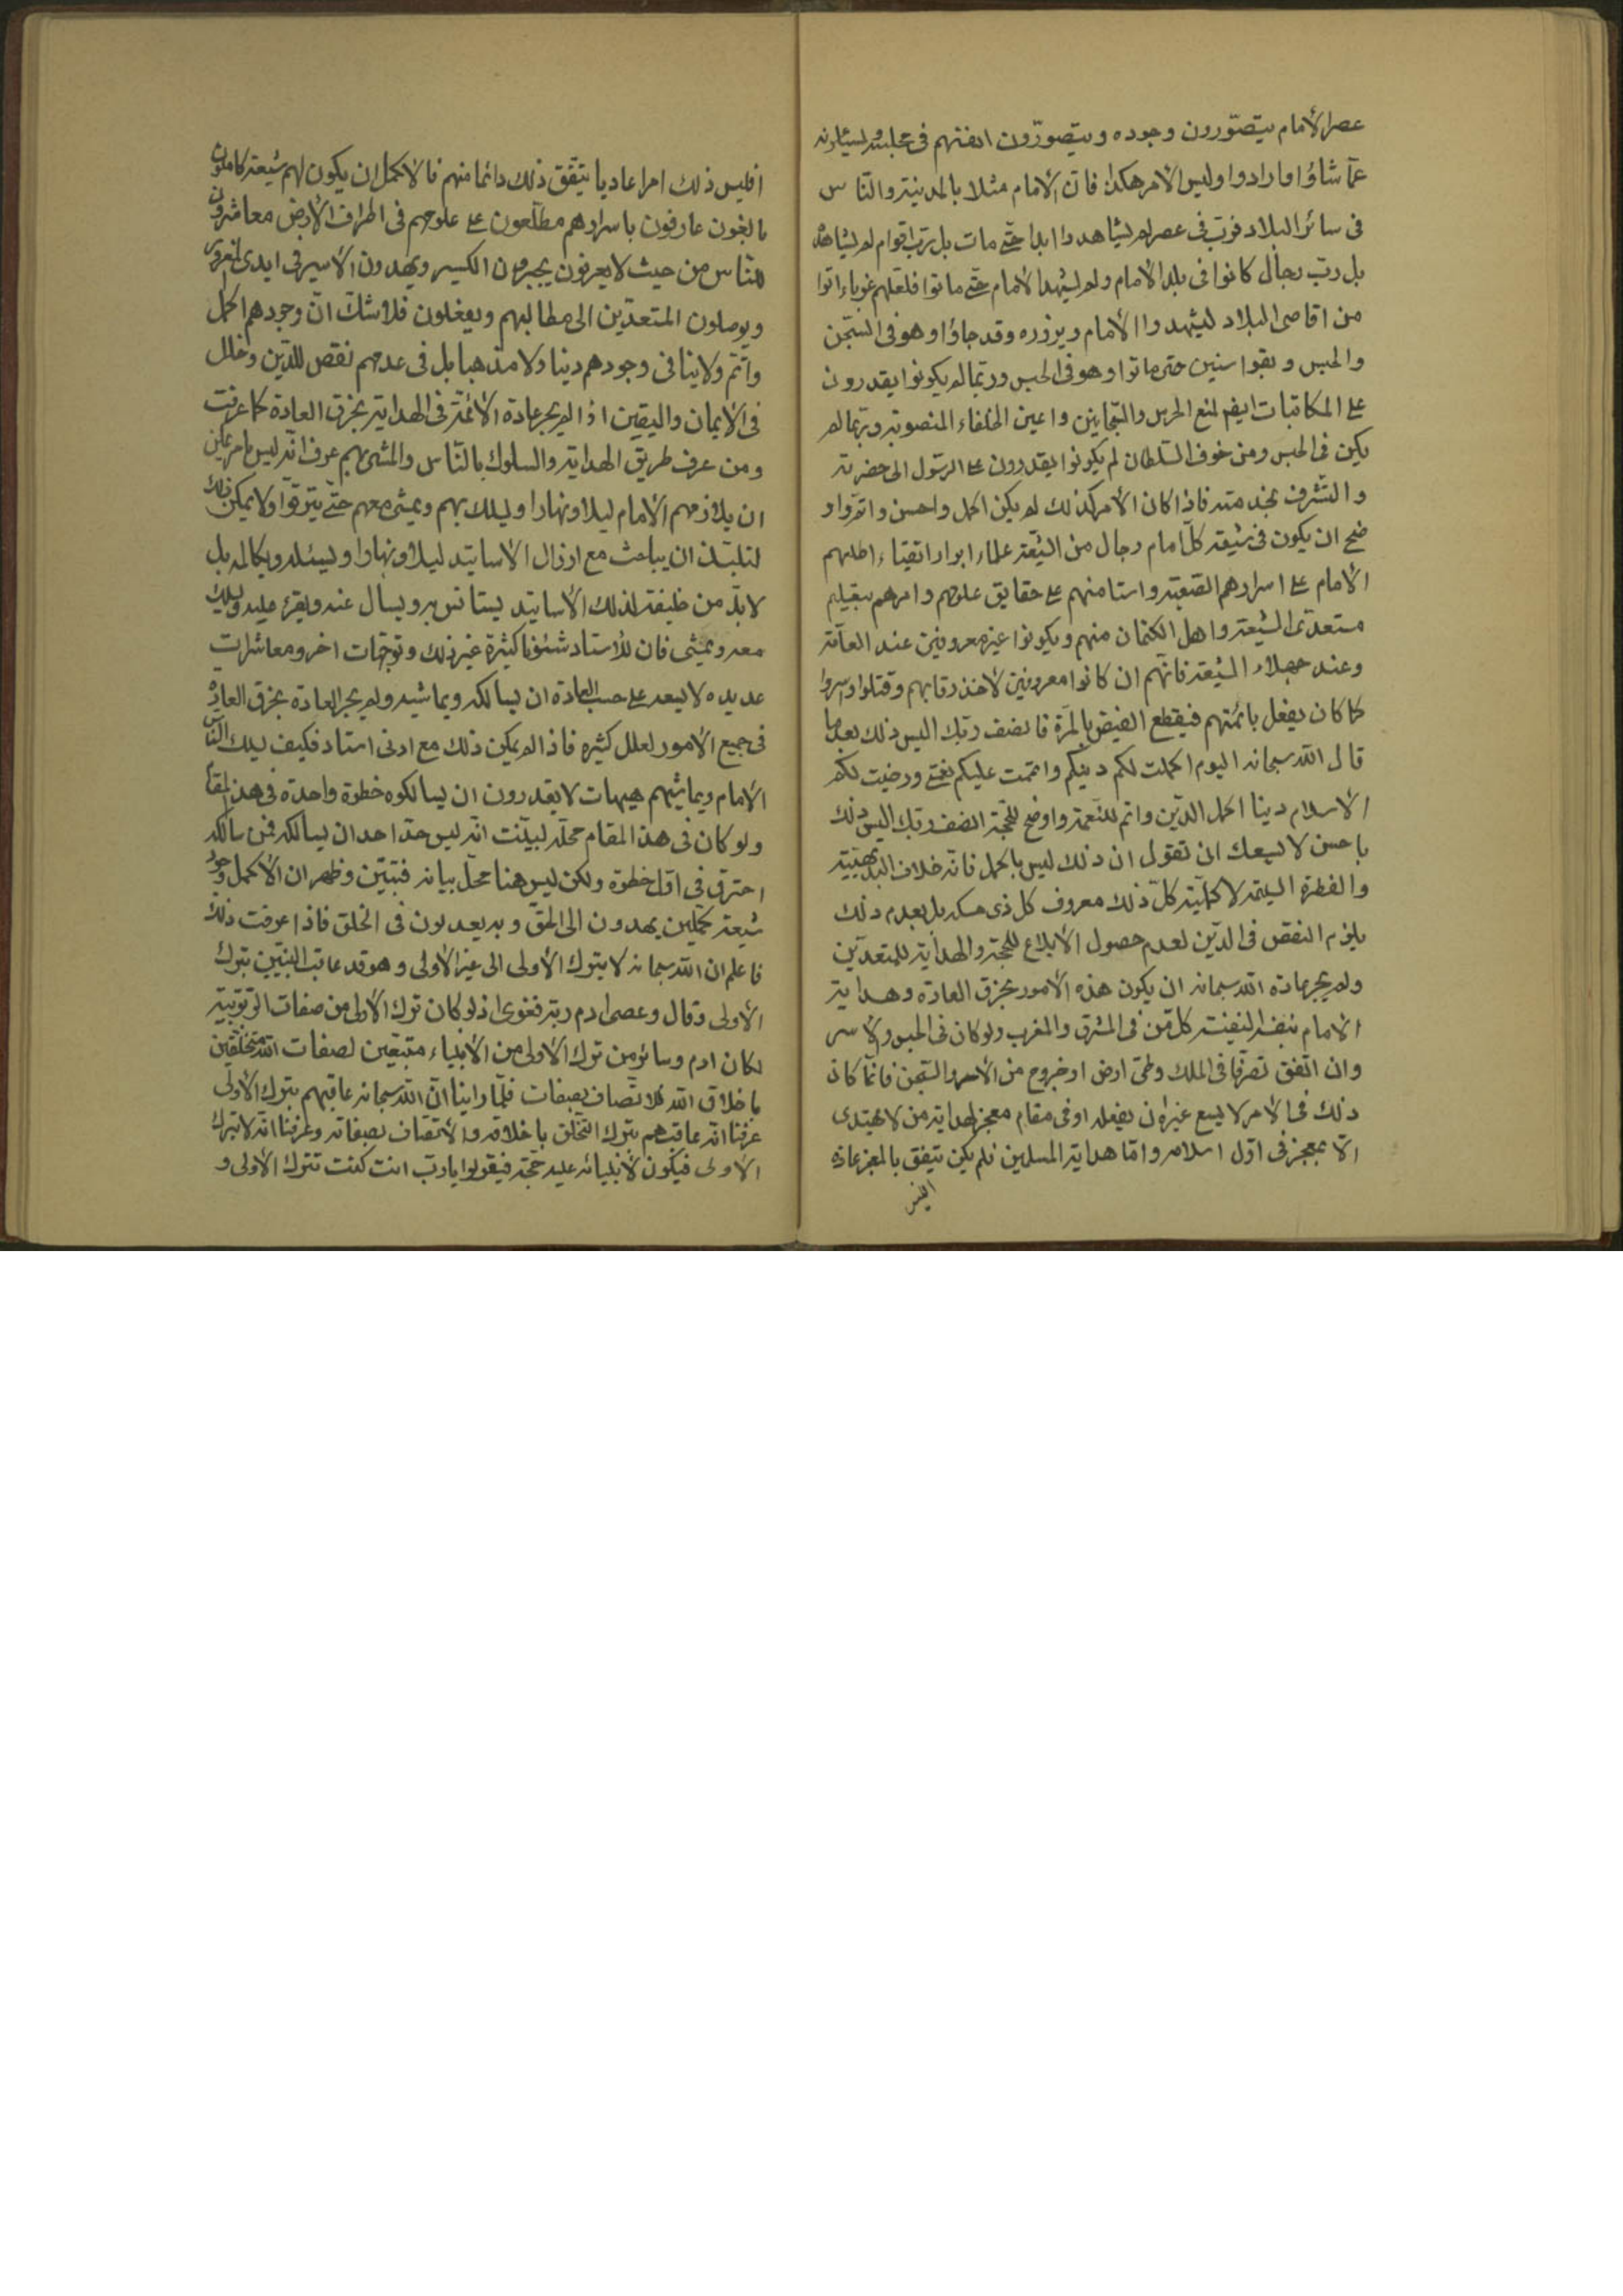 عصر الأمام يتصوّرون وجوده ويتصوّرون انفسهم فى مجلسه يسئلونه
عمّا شاؤا وارادوا وليس الأمر هكذا فان الأمام مثلا بالمدينة والنّاس
فى سائر البلاد فربّ فى عصر لم يشاهدوا ابدا حتّى مات بل ربّ اقوام لم يشاهدوا
بل ربّ رجال كانوا فى بلد الامام ولم يشهدوا الامام حتّى ماتوا فلعلّهم غرباء اتوا
من اقاصى البلاد ليشهدوا الأمام ويزوره وقد جاؤا وهو فى السّجن
والحبس وبقوا سنين حتى ماتوا وهو فى الحبس وربّما لم يكونوا يقدرون
على المكاتبات ايضا لمنع الحرس والسّجانين واعين الخلفاء المنصوبة وربّما لم
يكن فى الحبس ومن خوف السّلطان لم يكونوا يقدرون على الرسول الى حضرته
والتّشرف بخدمته فاذا كان الأمر كذلك لم يكن اكمل واحسن واتمّ واو
ضح ان يكون فى شيعة كلّ امام رجال من الشّيعة علماء ابرار اتقياء اطلعهم
الأمام على اسرارهم الصّعبة واستامنهم على حقايق علومهم وامرهم بتبليغ
مستعدّى الشّيعة واهل الكتمان منهم ويكونوا غير معروفين عند العامّة
وعند جهلاء الشّيعة فانّهم ان كانوا معروفين لأخذ رقابهم وقتلوا واسروا
كما كان يفعل بائمّتهم فيقطع الفيض بالمرّة فانصف ربّك اليس ذلك بعد ما
قال الله سبحانه اليوم اكملت لكم دينكم واتممت عليكم نعمتى ورضيت لكم
الاسلام دينا اكمل الدين واتم للنّعمة واوضح للحجّة انصف ربّك اليس ذلك
باحسن لا يسعك ان تقول ان ذلك ليس باكمل فانّه خلاف البديهيّة
والفطرة السليمة لاكمليّة كلّ ذلك معروف كل ذى مسكة بل بعدم ذلك
يلزم النقص فى الدّين لعدم حصول الأبلاغ للحجة والهداية للمستعدّين
ولم يجر عادة الله سبحانه ان يكون هذه الأمور بخرق العادة وهداية
الأمام بنفسه لنفس كل من فى المشرق والمغرب ولو كان فى الحبس والأسر
وان اتّفق تصرّفا فى الملك وطىّ ارض او خروج من الأسر والسّجن فانّما كان
ذلك فى الامر لا يسع غيره ان يفعله او فى مقام معجز لهداية من لا يهتدى
الّا بمعجز فى اوّل اسلامه وامّا هداية المسلمين فلم يكن يتفق بالمعجز عادة
افليس
افليس ذلك امرا عاديا يتّفق ذلك دائما منهم فالاكمل ان يكون لهم شيعة كاملون
بالغون عارفون باسرارهم مطّلعون على علومهم فى اطراف الأرض معاشرون
للنّاس من حيث لا يعرفون يجبرون الكسير ويهدون الأسير فى ايدى الغرور
ويوصلون المستعدّين الى مطالبهم ويفعلون فلا شكّ انّ وجودهم اكمل
واتمّ ولا ينافى وجودهم دينا ولا مذهبا بل فى عدمهم نقص للدّين وخلل
فى الأيمان واليقين اذ لم يجر عادة الأئمّة فى الهداية بخرق العادة كما عرفت
ومن عرف طريق الهداية والسلوك بالنّاس والمشى بهم عرف انّه ليس بامر يمكن
ان يلازمهم الأمام ليلا ونهارا ويسلك بهم ويمشى معهم حتّى يترقّوا ولا يمكن ذلك
لتلميذ ان يباحث مع ارذال الأساتيد ليلا ونهارا ويسئله ويكالمه بل
لا بدّ من خليفة لذلك الأساتيد يستانس به ويسأل عنه ويقرء عليه ويسلك
معه ويمشى فان للأستاد شئونا كثيرة غير ذلك وتوجّهات اخر ومعاشرات
عديده لا يسعه على حسب العادة ان يسالكه ويماشيه ولم يجر العادة بخرق العادة
فى جميع الأمور لعلل كثيرة فاذا لم يكن ذلك مع ادنى استاد فكيف يسلك النّاس
الأمام ويماشيهم هيهات لا يقدرون ان يسالكوه خطوة واحدة فى هذا المقام
ولو كان فى هذا المقام محلّه لبيّنت انّه ليس حدّ احد ان يسالكه فمن سالكه
احترق فى اوّل خطوة ولكن ليس هنا محلّ بيانه فتبيّن وظهر ان الأكمل وجود
شيعة كمّلين يهدون الى الحقّ وبه يعدلون فى الخلق فاذا عرفت ذلك
فاعلم ان الله سبحانه لا يترك الأولى الى غير الأولى وهو قد عاتب النبيّين بترك
الأولى وقال وعصى ادم ربّه فغوى اذ لو كان ترك الأولى من صفات الرّبوبيّة
لكان ادم وسائر من ترك الأولى من الأنبياء متّبعين لصفات الله متخلّقين
باخلاق الله فلا تّصاف بصفات فلمّا راينا انّ الله سبحانه عاقبهم بترك الأولى
عرفنا انّه عاقبهم بترك التّخلّق باخلاقه والأتّصاف بصفاته وعرفنا انّه لا يترك
الأولى فيكون لأنبيائه عليه حجّة فيقولوا يا ربّ انت كنت تترك الأولى و